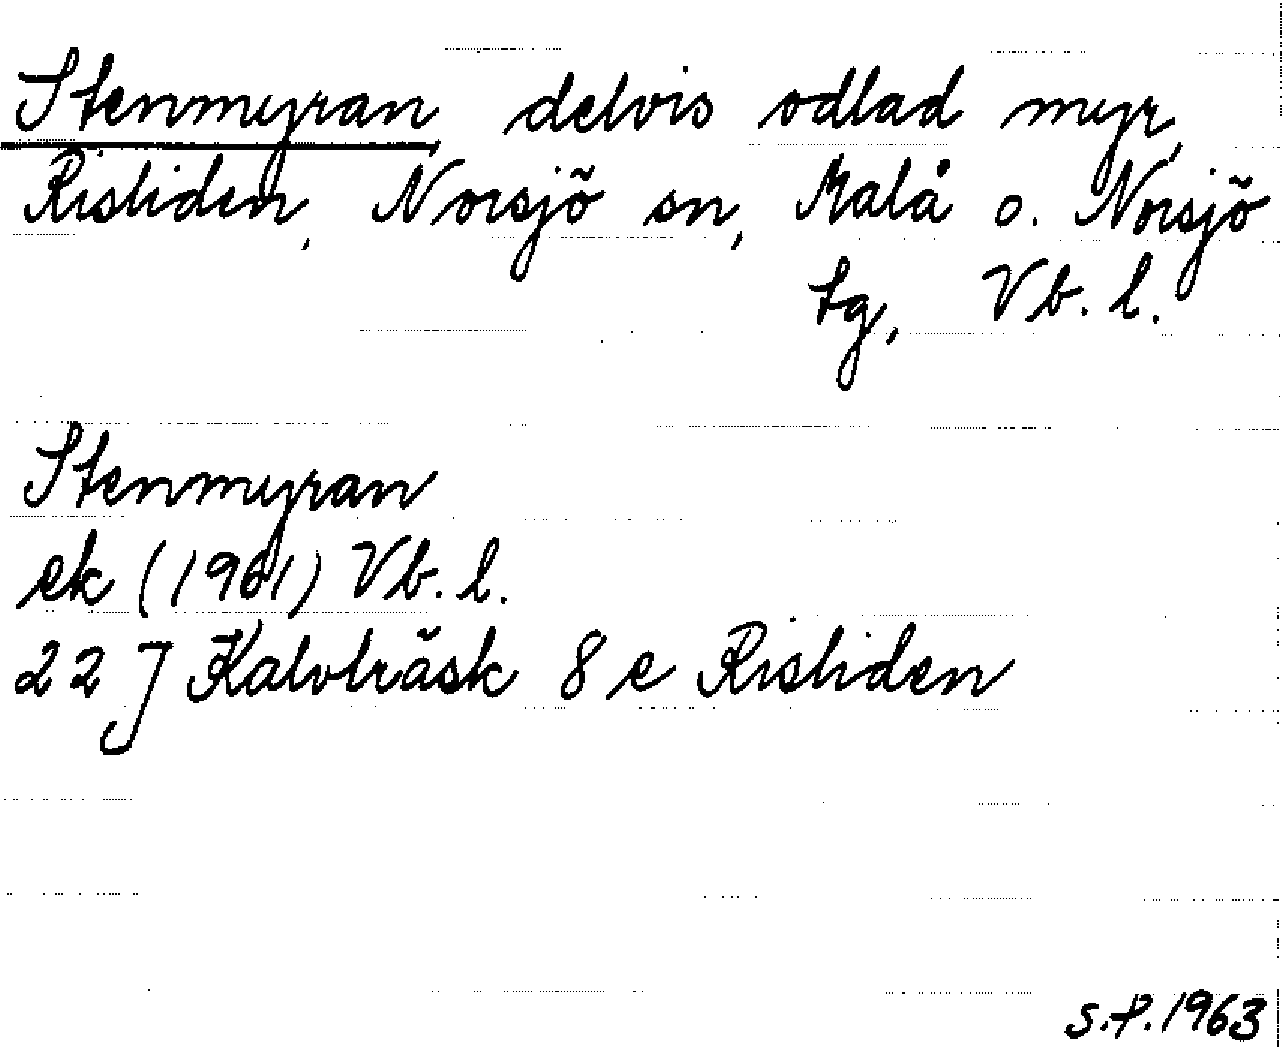 Stenmyran, delvis odlad myr,
Risliden, Norsjö sn, Malå o. Norsjö
tg, Vb. l.
Stenmyran
ek (1961) Vb. l.
22 J Kalvträsk 8 e Risliden
S.P. 1963